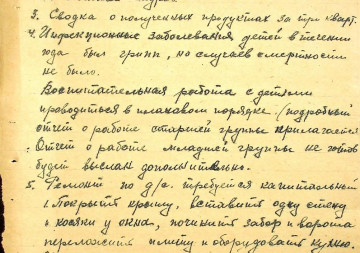 3. Сводка о полученных продуктах за три кварт.
4. Инфекционные заболевания детей в течении
года был грипп, но случаев смертности
не было.
Воспитательная работа с детьми
проводиться в плановом порядке. (подробный
отчет о работе старшей группы прилагается
Отчет о работе младшей группы не готов
будет выслан дополнительно.
5. Ремонт по д/о. требуется капитальный
покрыть крышу, вставить одну стену
и косяки у окна, починить забор и ворота
переложить плиту и оборудовать кухню.